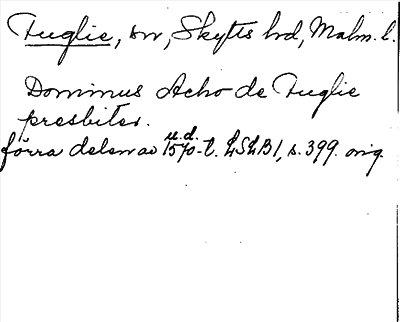 Fuglie, sn, Skytts hd, Malm. l.
Dominus Acho de Fuglie
presbiter.
u.d.
förra delen av 1570-t. LSLB1, s. 399. orig.